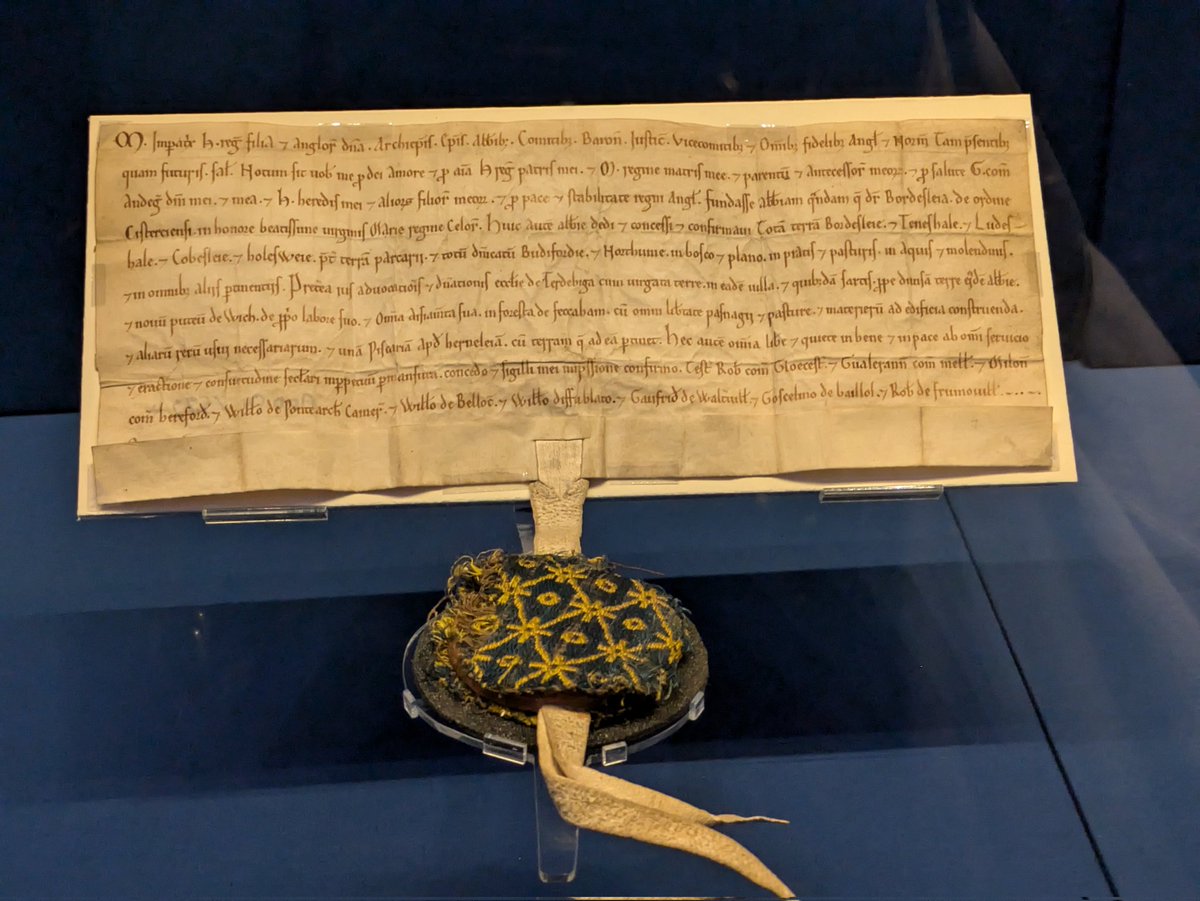 M. Impatr̃. H. reg̃ filia ⁊ anglor̃ dn̄a. Archiep̄is. Ep̄is. Abb̄ibꝫ. Comitibꝫ. Baron̄. Justic̄. Vicecomitibꝫ ⁊ Om̄ibꝫ fidelibꝫ Angl̄ ⁊ Norm̄ Tam p̄sentibꝫ
quam futuris. sal̄. Notum sit uob̄ me ꝓ dei amore ⁊ ꝓ aīa H reg̃ patris mei. ⁊ M. regine matris mee. ⁊ parentū ⁊ antecessor̃ meoꝝ. ⁊ ꝓ salute G. com̄
andeg̃ dn̄i mei. ⁊ mea. ⁊ H. heredis mei ⁊ alioꝝ filior̃ meoꝝ. ⁊ ꝓ pace ⁊ stabilitate regni Angl̄. fundasse abb̄iam q̄ndam q̄ dr̄ Bordesleia. de ordine
Cisterciensi. in honore beatissime uirginis Marie regine Celor̃. Huic aut̄e abb̄ie dedi ⁊ concessi ⁊ confirmaui Totā terrā Bordesleie. ⁊ Teneshale. ⁊ Ludes-
hale. ⁊ Cobesleie. ⁊ holesweie. p̄t̄ terrā parcarii. ⁊ totū dn̄icatū Budifordie. ⁊ Northtune. in bosco ⁊ plano. in pratis ⁊ pasturis. in aquis ⁊ molendinis.
⁊ in omnibꝫ aliis ꝑtinentiis. Pret̄ea ius aduocationis ⁊ dn̄ationis eccl̄ie de Terdebiga cum uirgata terre. in eadē uilla. ⁊ quibꝫdā sartis. ꝓpe diuisā terre eiꝰdē abb̄ie.
⁊ nouū puteū de Wich. de ꝓp̄o labore suo. ⁊ Om̄ia aisiam̄ta sua. in foresta de feccaham. cū omni lib̄tate pasnagii ⁊ pasture. ⁊ materierū ad edificia construenda.
⁊ aliarū rerū usui necessariarum. ⁊ unā Piscariā apd̄ herneleiā. cū terram q̄ ad eā ꝑtinet. Hec aut̄e om̄ia lib̄e ⁊ quiete in bene ⁊ in pace ab om̄i seruicio
⁊ exactione ⁊ consuetudine secl̄ari inꝑpetuū ꝑmansura. concedo ⁊ sigilli mei inp̄ssione confirmo. Test̄ Rob̄ com̄ Gloec̄est̄. ⁊ Gualerann̄ com̄ mell̄. ⁊ Milon̄
com̄ hereford̄. ⁊ Will̄o de Pontearch̄ Camer̄. ⁊ Will̄o de Belloc̄. ⁊ Will̄o diffublato. ⁊ Gaufrid̄ de Walt̄uill̄. ⁊ Goscelino de baillol̄. ⁊ Rob̄ de frunouill̄.